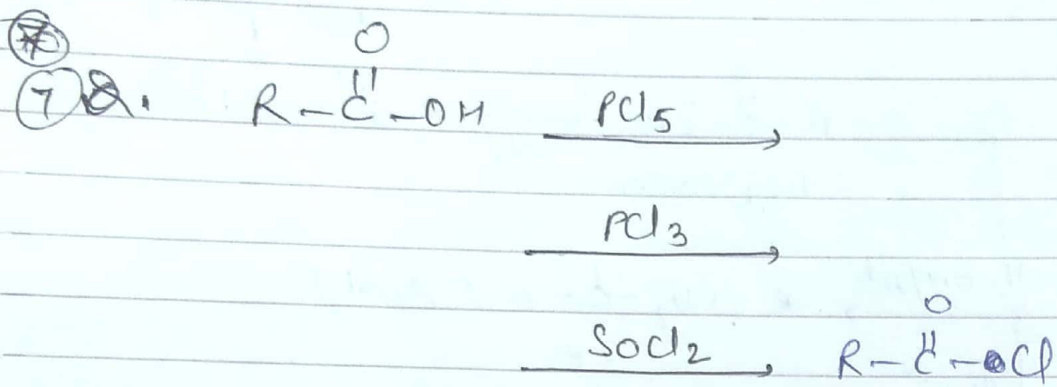 7 Q. R-C-OH PCl5
O
PCl3
SOCl2 R-C-Cl
O